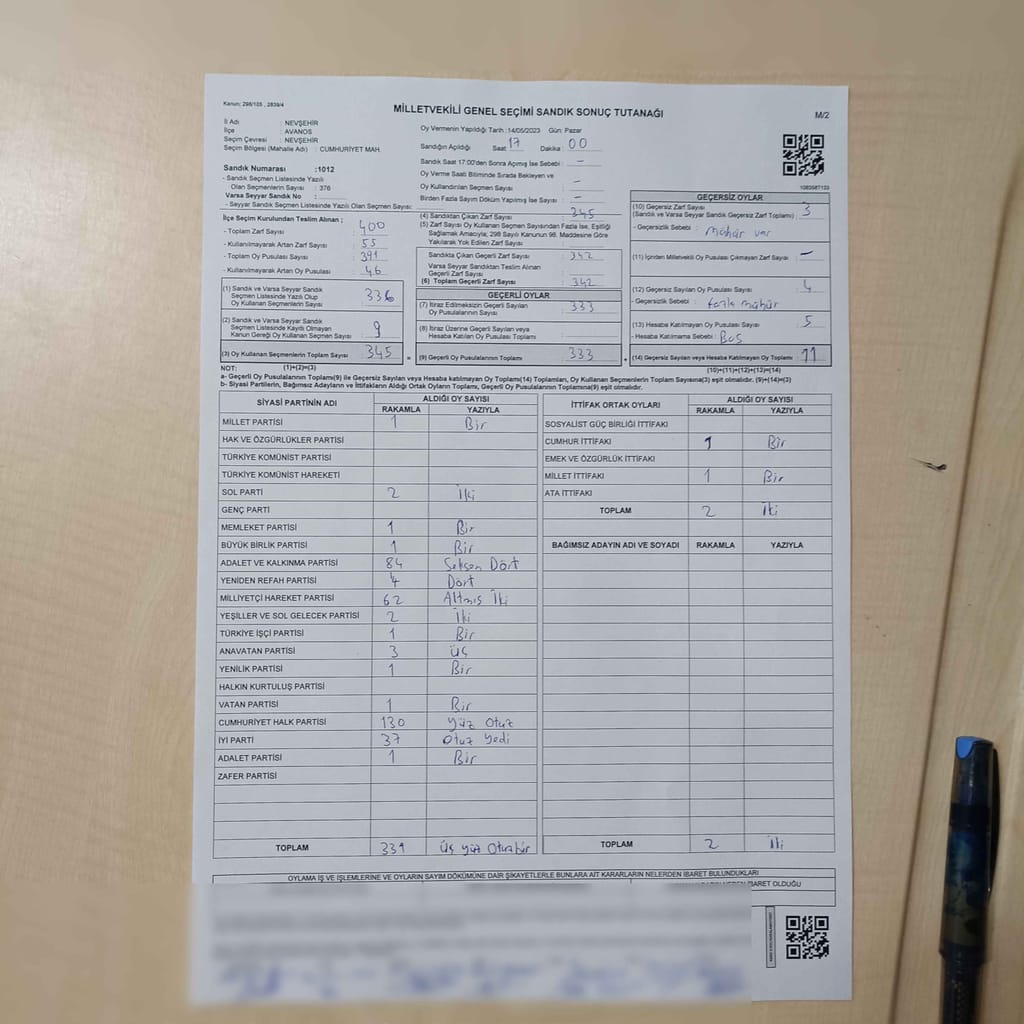 Kanun; 298/105 , 2839/4
MİLLETVEKİLİ GENEL SEÇİMİ SANDIK SONUÇ TUTANAĞI
M/2
İl Adı : NEVŞEHİR
İlçe : AVANOS
Seçim Çevresi : NEVŞEHİR
Seçim Bölgesi (Mahalle Adı) : CUMHURİYET MAH.
Sandık Numarası :1012
- Sandık Seçmen Listesinde Yazılı
Olan Seçmenlerin Sayısı : 376
Varsa Seyyar Sandık No :
- Seyyar Sandık Seçmen Listesinde Yazılı Olan Seçmen Sayısı:
Oy Vermenin Yapıldığı Tarih :14/05/2023 Gün: Pazar
Sandığın Açıldığı Saat : 17 Dakika : 00
Sandık Saat 17:00'den Sonra Açımış İse Sebebi : -
Oy Verme Saati Bitiminde Sırada Bekleyen ve
Oy Kullandırılan Seçmen Sayısı : -
Birden Fazla Sayım Döküm Yapılmış İse Sayısı : -
1080587103
İlçe Seçim Kurulundan Teslim Alınan ;
- Toplam Zarf Sayısı : 400
- Kullanılmayarak Artan Zarf Sayısı : 55
- Toplam Oy Pusulası Sayısı : 391
- Kullanılmayarak Artan Oy Pusulası : 46
(1) Sandık ve Varsa Seyyar Sandık
Seçmen Listesinde Yazılı Olup
Oy Kullanan Seçmenlerin Sayısı : 336
(2) Sandık ve Varsa Seyyar Sandık
Seçmen Listesinde Kayıtlı Olmayan
Kanun Gereği Oy Kullanan Seçmen Sayısı : 9
(3) Oy Kullanan Seçmenlerin Toplam Sayısı : 345
(1)+(2)=(3)
(4) Sandıktan Çıkan Zarf Sayısı : 345
(5) Zarf Sayısı Oy Kullanan Seçmen Sayısından Fazla İse, Eşitliği
Sağlamak Amacıyla; 298 Sayılı Kanunun 98. Maddesine Göre
Yakılarak Yok Edilen Zarf Sayısı :
Sandıkta Çıkan Geçerli Zarf Sayısı : 342
Varsa Seyyar Sandıktan Teslim Alınan
Geçerli Zarf Sayısı :
(6) Toplam Geçerli Zarf Sayısı : 342
GEÇERLİ OYLAR
(7) İtiraz Edilmeksizin Geçerli Sayılan
Oy Pusulasının Sayısı : 333
(8) İtiraz Üzerine Geçerli Sayılan veya
Hesaba Katılan Oy Pusulası Toplamı :
= (9) Geçerli Oy Pusulalarının Toplamı : 333
GEÇERSİZ OYLAR
(10) Geçersiz Zarf Sayısı
(Sandık ve Varsa Seyyar Sandık Geçersiz Zarf Toplamı) : 3
- Geçersizlik Sebebi : mühür var
(11) İçinden Milletvekili Oy Pusulası Çıkmayan Zarf Sayısı : -
(12) Geçersiz Sayılan Oy Pusulası Sayısı : 4
- Geçersizlik Sebebi : fazla mühür
(13) Hesaba Katılmayan Oy Pusulası Sayısı : 5
- Hesaba Katılmama Sebebi : Boş
+ (14) Geçersiz Sayılan veya Hesaba Katılmayan Oy Toplamı : 11
(10)+(11)+(12)+(13)=(14)
NOT:
a- Geçerli Oy Pusulalarının Toplamı(9) ile Geçersiz Sayılan veya Hesaba katılmayan Oy Toplamı(14) Toplamları, Oy Kullanan Seçmenlerin Toplam Sayısına(3) eşit olmalıdır. (9)+(14)=(3)
b- Siyasi Partilerin, Bağımsız Adayların ve İttifakların Aldığı Ortak Oyların Toplamı, Geçerli Oy Pusulalarının Toplamına(9) eşit olmalıdır.
SİYASİ PARTİNİN ADI ALDIĞI OY SAYISI
RAKAMLA YAZIYLA
MİLLET PARTİSİ 1 Bir
HAK VE ÖZGÜRLÜKLER PARTİSİ
TÜRKİYE KOMÜNİST PARTİSİ
TÜRKİYE KOMÜNİST HAREKETİ
SOL PARTİ 2 İki
GENÇ PARTİ
MEMLEKET PARTİSİ 1 Bir
BÜYÜK BİRLİK PARTİSİ 1 Bir
ADALET VE KALKINMA PARTİSİ 84 Seksen Dört
YENİDEN REFAH PARTİSİ 4 Dört
MİLLİYETÇİ HAREKET PARTİSİ 62 Altmış İki
YEŞİLLER VE SOL GELECEK PARTİSİ 2 İki
TÜRKİYE İŞÇİ PARTİSİ 1 Bir
ANAVATAN PARTİSİ 3 üç
YENİLİK PARTİSİ 1 Bir
HALKIN KURTULUŞ PARTİSİ
VATAN PARTİSİ 1 Bir
CUMHURİYET HALK PARTİSİ 130 Yüz Otuz
İYİ PARTİ 37 Otuz Yedi
ADALET PARTİSİ 1 Bir
ZAFER PARTİSİ
TOPLAM 331 Üç yüz Otuzbir
İTTİFAK ORTAK OYLARI ALDIĞI OY SAYISI
RAKAMLA YAZIYLA
SOSYALİST GÜÇ BİRLİĞİ İTTİFAKI
CUMHUR İTTİFAKI 1 Bir
EMEK VE ÖZGÜRLÜK İTTİFAKI
MİLLET İTTİFAKI 1 Bir
ATA İTTİFAKI
TOPLAM 2 İki
BAĞIMSIZ ADAYIN ADI VE SOYADI RAKAMLA YAZIYLA
TOPLAM 2 İki
OYLAMA İŞ VE İŞLEMLERİNE VE OYLARIN SAYIM DÖKÜMÜNE DAİR ŞİKAYETLERLE BUNLARA AİT KARARLARIN NELERDEN İBARET BULUNDUKLARI
İBARET OLDUĞU